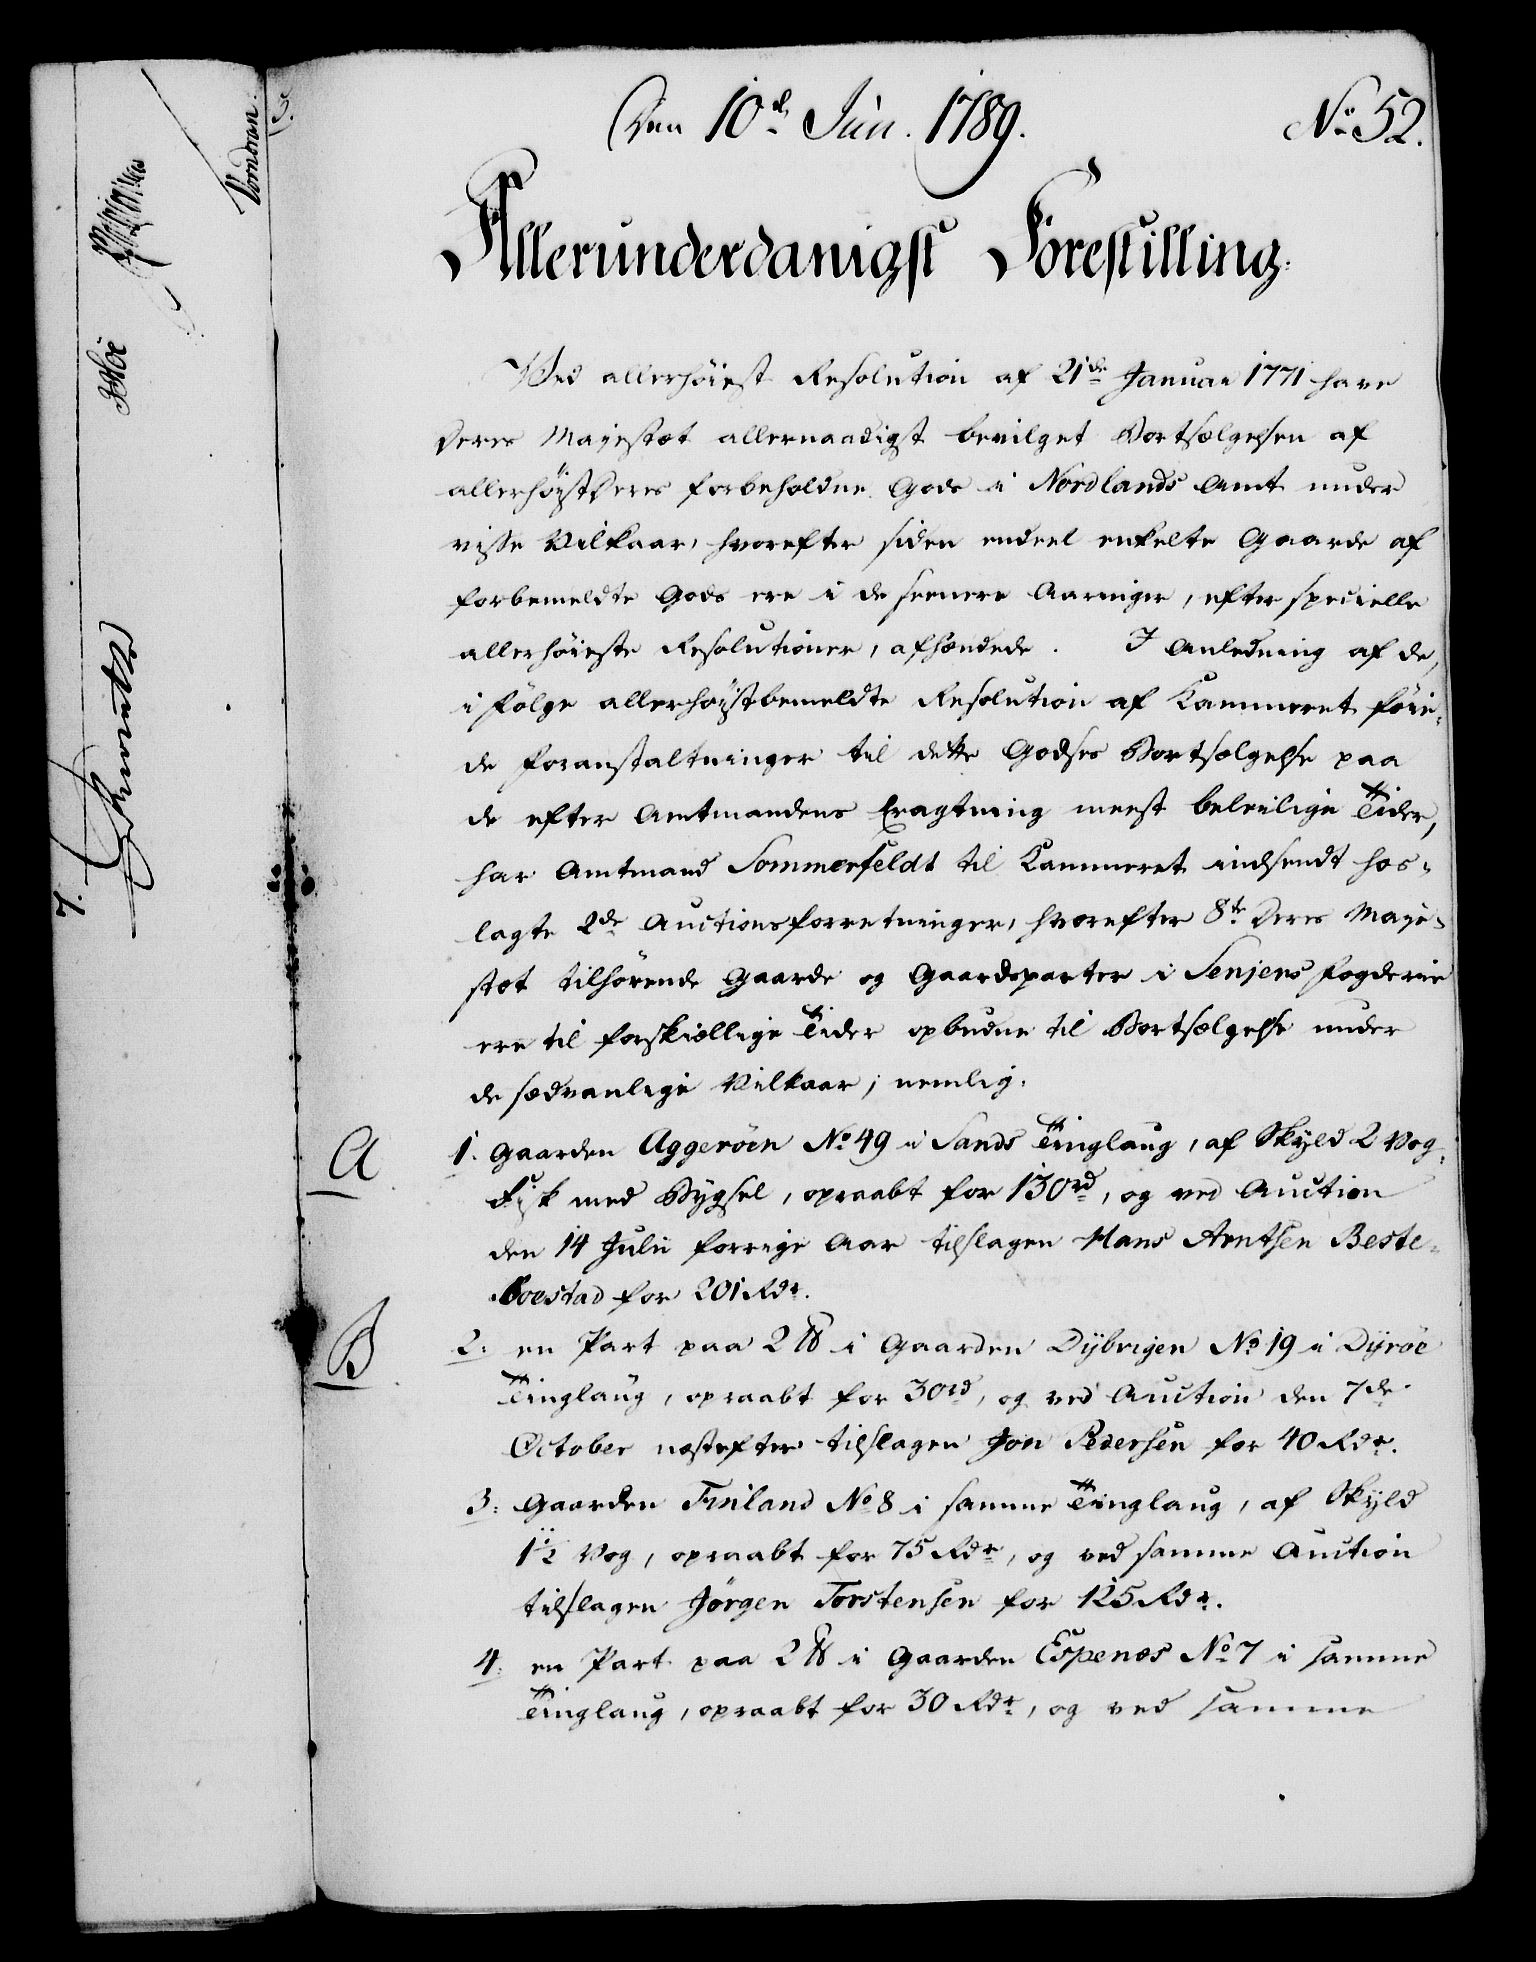 Den 10d. Jun. 1789.
No 52.
Allerunderdanigst Forestilling:
Ved allerhöiest Resolution af 21de Januar 1771 have
Deres Majestæt allernaadigst bevilget Bortsælgelsen af
allerhöystDeres forbeholdne Gods i Nordlands Amt under
visse Vilkaar, hvorefter siden endeel enkelte Gaarde af
forbemeldte Gods ere i de seenere Aaringer, efter specielle
allerhöieste Resolutioner, afhændede. I Anledning af de,
i fölge allerhöystbemeldte Resolution af Kammeret föie-
de foranstaltninger til dette Godses Bortsælgelse paa
de efter Amtmandens Eragtning meest beleilige Tider,
har Amtmand Sommerfeldt til Kammeret indsendt hos-
lagte 2de Auctionsforretninger, hvorefter 8te Deres Maje-
stæt tilhörende Gaarde og Gaardsparter i Senjens fogderie
ere til forskiællige Tider opbudne til Bortsælgelse under
de sædvanlige Vilkaar; nemlig.
A
1. Gaarden Aggeröen No 49 i Sands Tinglaug, af Skyld 2 Vog
Fisk med Bygsel, opraabt for 130rd, og ved Auction
den 14 Julii forrige Aar tilslagen Hans Arntsen Beste-
boestad for 201 Rdr.
B
2. en Part paa 2 ℔ i Gaarden Dybvigen No 19 i Dyröe
Tinglaug, opraabt for 30rd, og ved Auction den 7de
October næstefter tilslagen Jon Pedersen for 40 Rdr.
3. Gaarden Finland No 8 i samme Tinglaug, af Skyld
1½ Vog, opraabt for 75 Rdr, og ved samme Auction
tilslagen Jörgen Torstensen for 125 Rdr.
4. en Part paa 2 ℔ i Gaarden Espenæs No 7 i samme
Tinglaug, opraabt for 30 Rdr, og ved samme